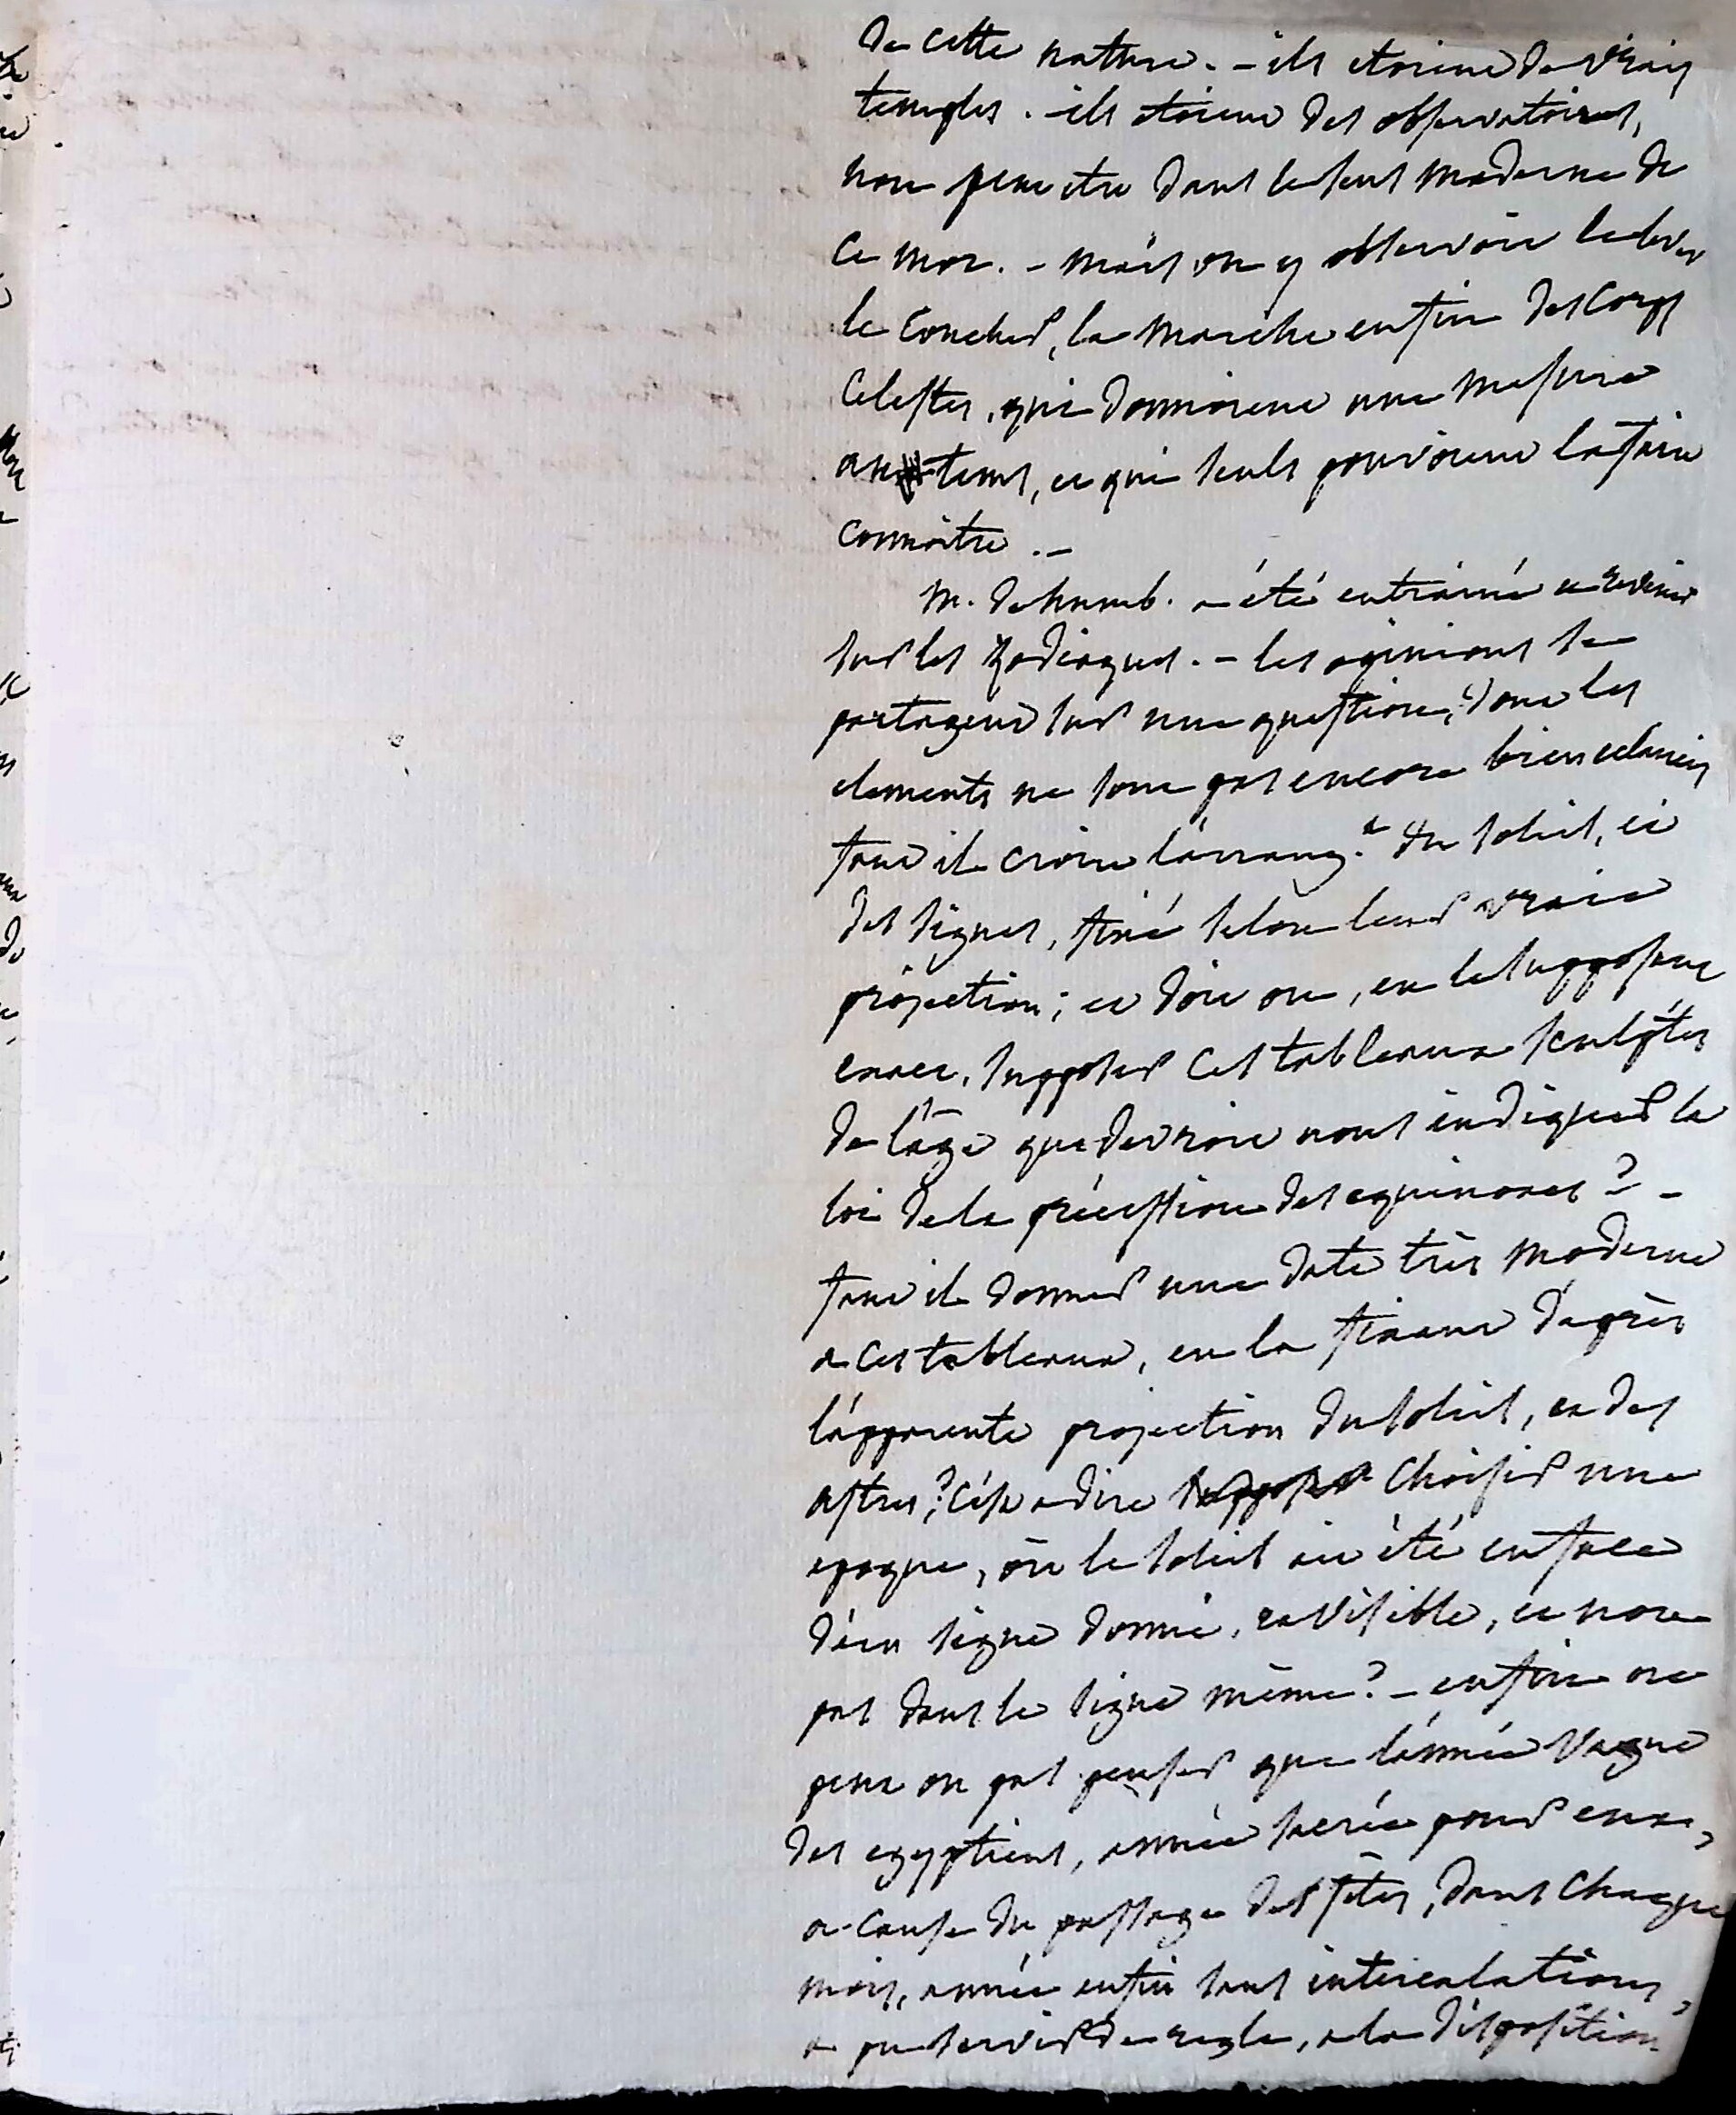 de cette nature. - ils etoient de vrais
temples. - ils etoient des observatoires,
non peut etre dans le sens moderne de
ce mot. - mais on y observoit le lever
le coucher, la marche enfin des corps
celestes, qui donnoient une mesure
au tems, et qui seuls pouvoient la faire
connoitre. -
M. de humb. a été entrainé a revenir
sur les Zodiaques. - les opinions se
partagent sur une question, dont les
elements ne sont pas encore bien eclaircis
faut il croire l'arrangt. du soleil, et
des signes, fixé selon leur vraie
projection; et doit on, en le supposant
exact, supposer ces tableaux sculptés
de l'âge que devroit nous indiquer la
loi de la précession des equinoxes? -
faut il donner une date très moderne
a ces tableaux, en la fixant d'après
l'apparente projection du soleil, et des
astres? c'est a dire supposer choisir une
epoque, où le soleil ait été en face
d'un signe donné, et visible, et non
pas dans le signe même? - enfin ne
peut on pas penser que l'année vague
des egyptiens, année sacrée pour eux,
a cause du passage des fêtes, dans chaque
mois, année enfin sans intercalations,
a pu servir de regle, a la disposition